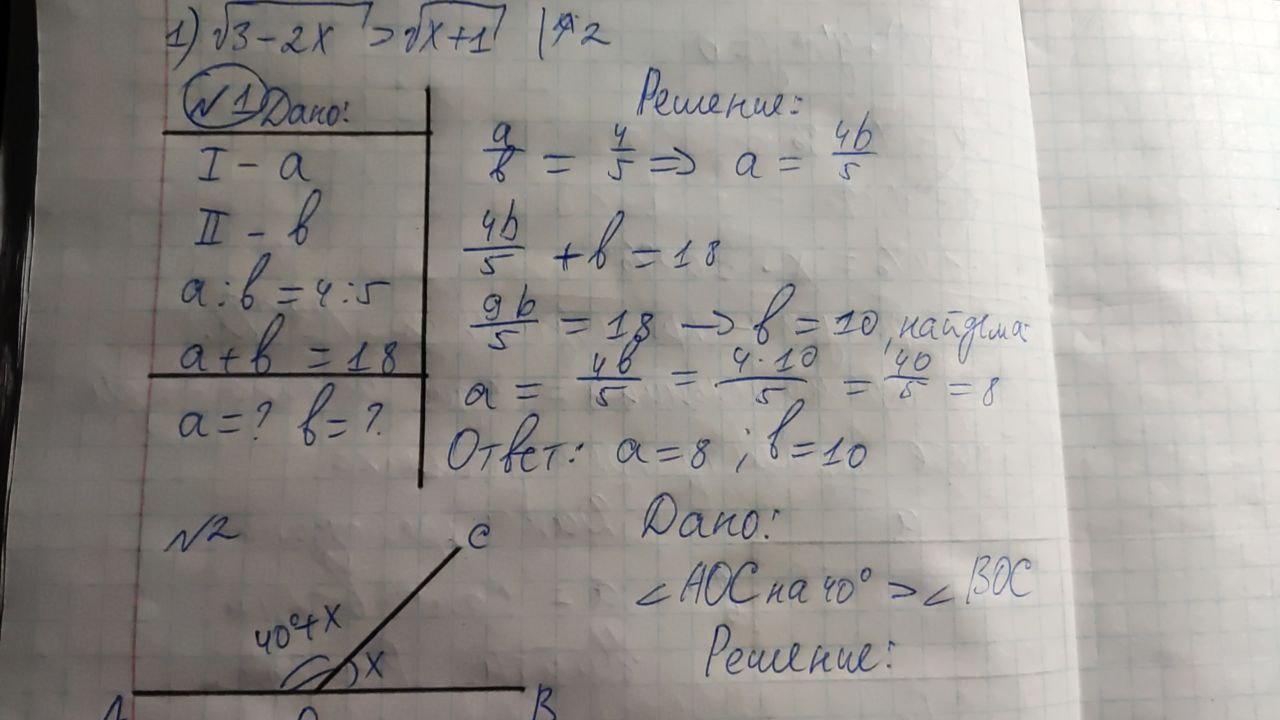 1) √3-2x > √x+1 |^2
№1 Дано:
I - a
II - b
a:b=4:5
a+b=18
a=? b=?
Решение:
a/b = 4/5 => a = 4b/5
4b/5 + b = 18
9b/5 = 18 → b = 10, найдем a:
a = 4b/5 = 4·10/5 = 40/5 = 8
Ответ: a=8 ; b=10
№2
C
40°+x
x
A O B
Дано:
∠AOC на 40° > ∠BOC
Решение: